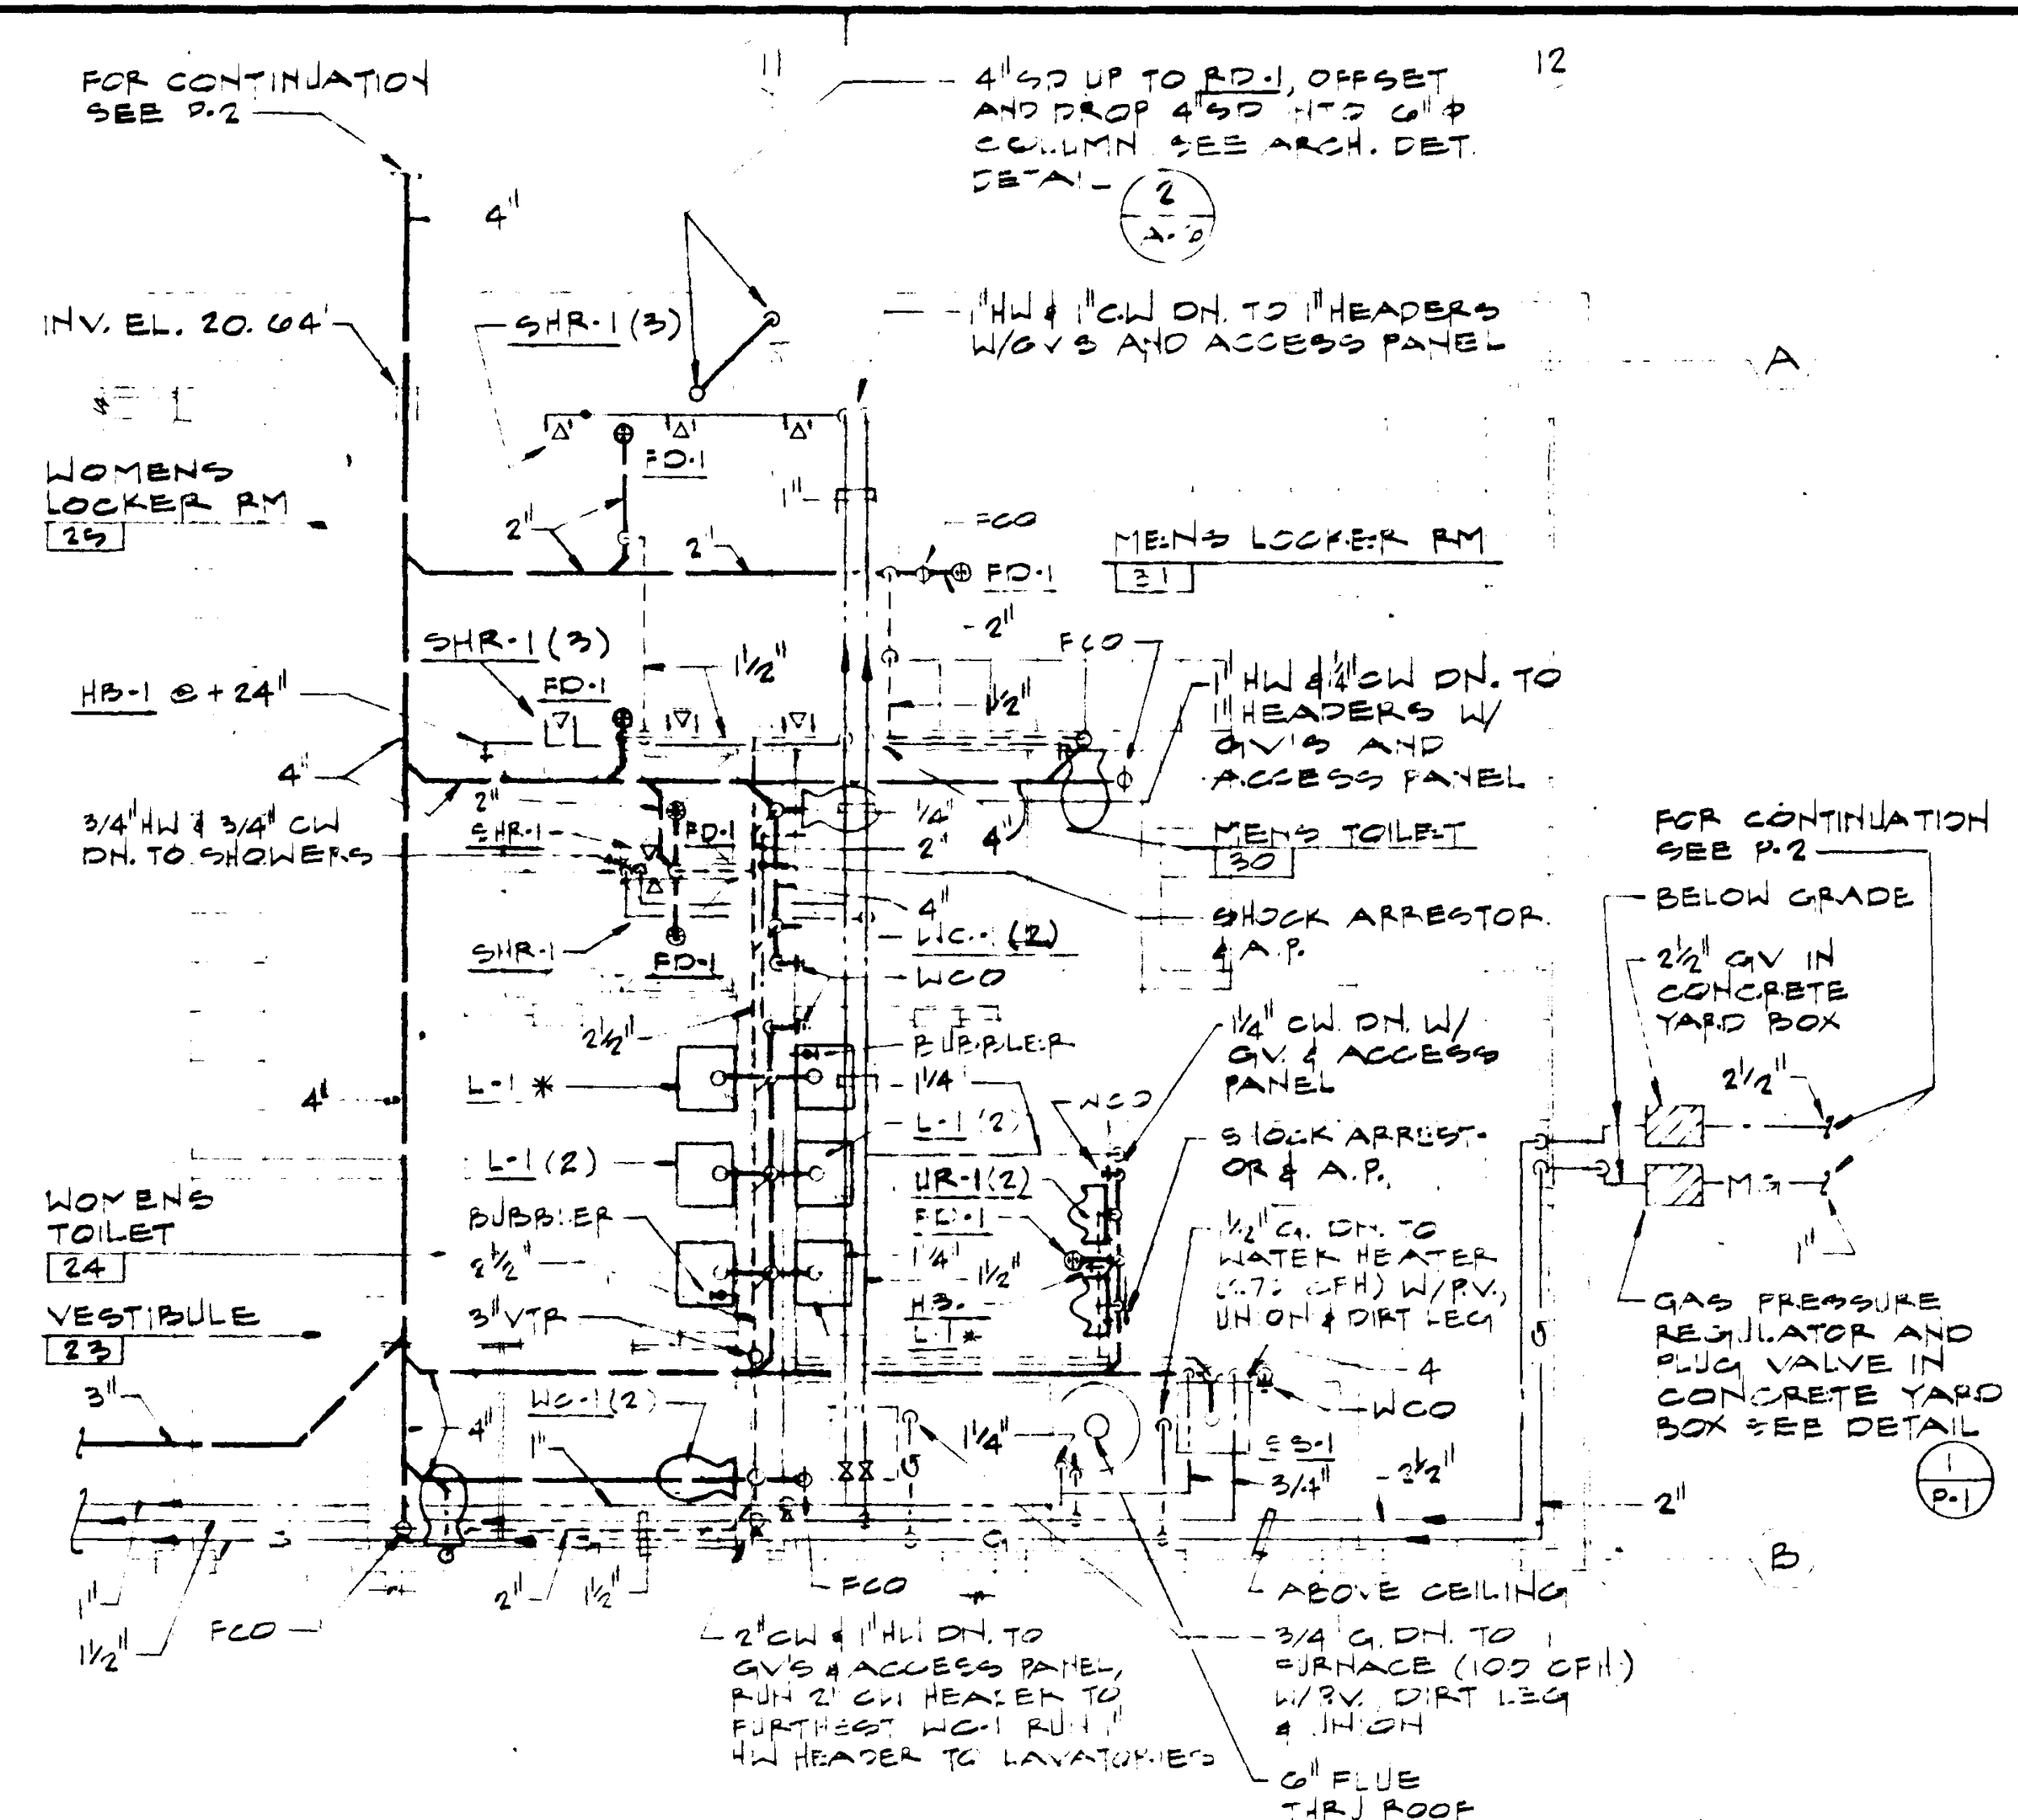 FOR CONTINUATION
SEE P.2
11
12
4" SD UP TO RD-1, OFFSET
AND DROP 4" SD INTO 6" φ
COLUMN SEE ARCH. DET.
DETAIL
2
4"
INV. EL. 20.64'
SHR-1 (3)
1" HW & 1" CW DN. TO 1" HEADERS
W/GV'S AND ACCESS PANEL
A
WOMENS
LOCKER RM
25
FD-1
1"
2"
2"
FCO
FD-1
MENS LOCKER RM
31
2"
SHR-1 (3)
FD-1
1 1/2"
FCO
1 1/2"
HB-1 @ +24"
1" HW & 1 1/4" CW DN. TO
1" HEADERS W/
GV'S AND
ACCESS PANEL
4"
2"
3/4" HW & 3/4" CW
DN. TO SHOWERS
SHR-1
FD-1
2"
4"
MENS TOILET
30
FOR CONTINUATION
SEE P.2
BELOW GRADE
4"
SHOCK ARRESTOR
& A.P.
WC-1 (2)
WCO
SHR-1
FD-1
2 1/2" GV IN
CONCRETE
YARD BOX
2 1/2"
BUBBLER
1 1/4" CW DN. W/
GV. & ACCESS
PANEL
2 1/2"
L-1 *
1 1/4"
4"
WCO
L-1 (2)
L-1 (2)
SHOCK ARREST-
OR & A.P.
UR-1 (2)
MG
WOMENS
TOILET
24
BUBBLER
FD-1
1/2" G. DN. TO
WATER HEATER
W/P.V.,
UNION & DIRT LEG
1"
2 1/2"
1 1/4"
1 1/2"
GAS PRESSURE
REGULATOR AND
PLUG VALVE IN
CONCRETE YARD
BOX SEE DETAIL
1
P-1
VESTIBULE
23
3" VTR
L-1 *
G
4
3"
WC-1 (2)
WCO
4"
1"
1 1/4"
SS-1
3/4"
2 1/2"
2"
G
G
B
1"
1 1/2"
FCO
2"
1 1/2"
FCO
ABOVE CEILING
2" CW & 1" HW DN. TO
GV'S & ACCESS PANEL,
RUN 2" CW HEADER TO
FURTHEST WC-1 RUN 1"
HW HEADER TO LAVATORIES
3/4" G. DN. TO
FURNACE (100 CFH)
W/P.V. DIRT LEG
& UNION
6" FLUE
THRU ROOF